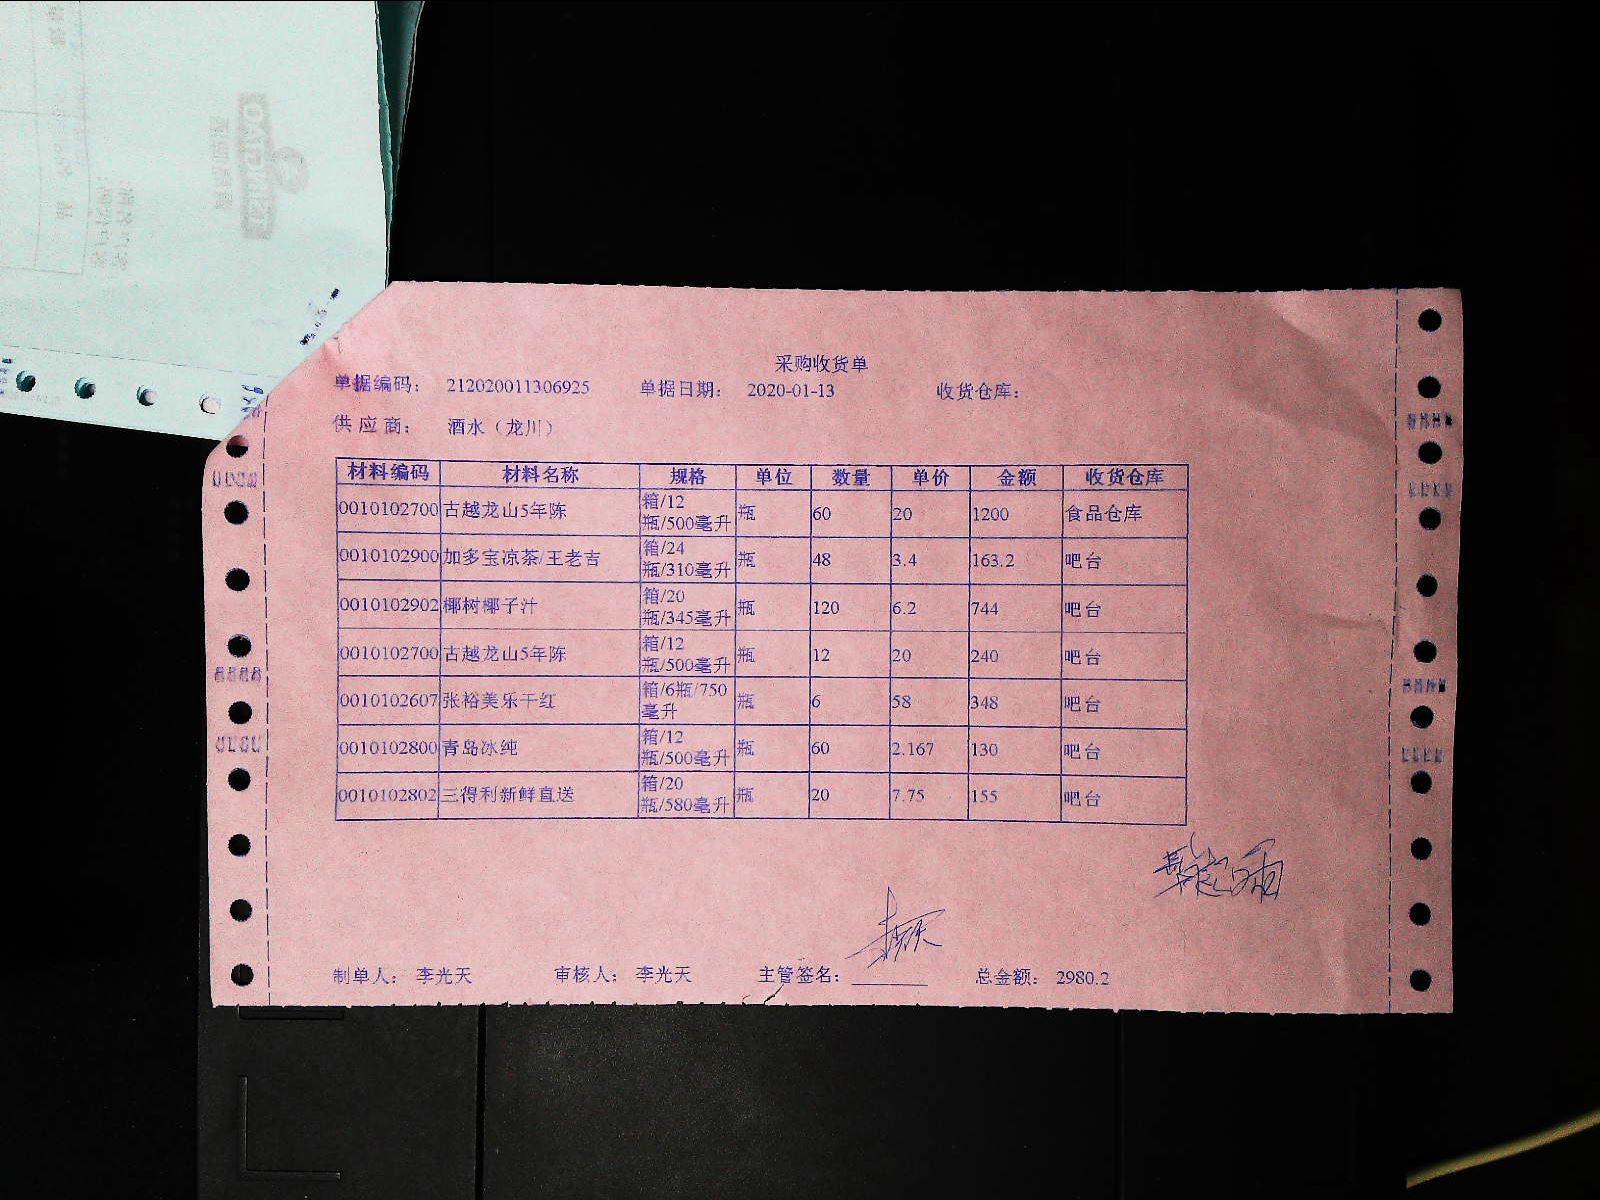 采购收货单
单据编码： 212020011306925 单据日期： 2020-01-13 收货仓库：
供应商： 酒水（龙川）
材料编码 材料名称 规格 单位 数量 单价 金额 收货仓库
0010102700 古越龙山5年陈 箱/12瓶/500毫升 瓶 60 20 1200 食品仓库
0010102900 加多宝凉茶/王老吉 箱/24瓶/310毫升 瓶 48 3.4 163.2 吧台
0010102902 椰树椰子汁 箱/20瓶/345毫升 瓶 120 6.2 744 吧台
0010102700 古越龙山5年陈 箱/12瓶/500毫升 瓶 12 20 240 吧台
0010102607 张裕美乐干红 箱/6瓶/750毫升 瓶 6 58 348 吧台
0010102800 青岛冰纯 箱/12瓶/500毫升 瓶 60 2.167 130 吧台
0010102802 三得利新鲜直送 箱/20瓶/580毫升 瓶 20 7.75 155 吧台
制单人： 李光天 审核人： 李光天 主管签名： 总金额： 2980.2